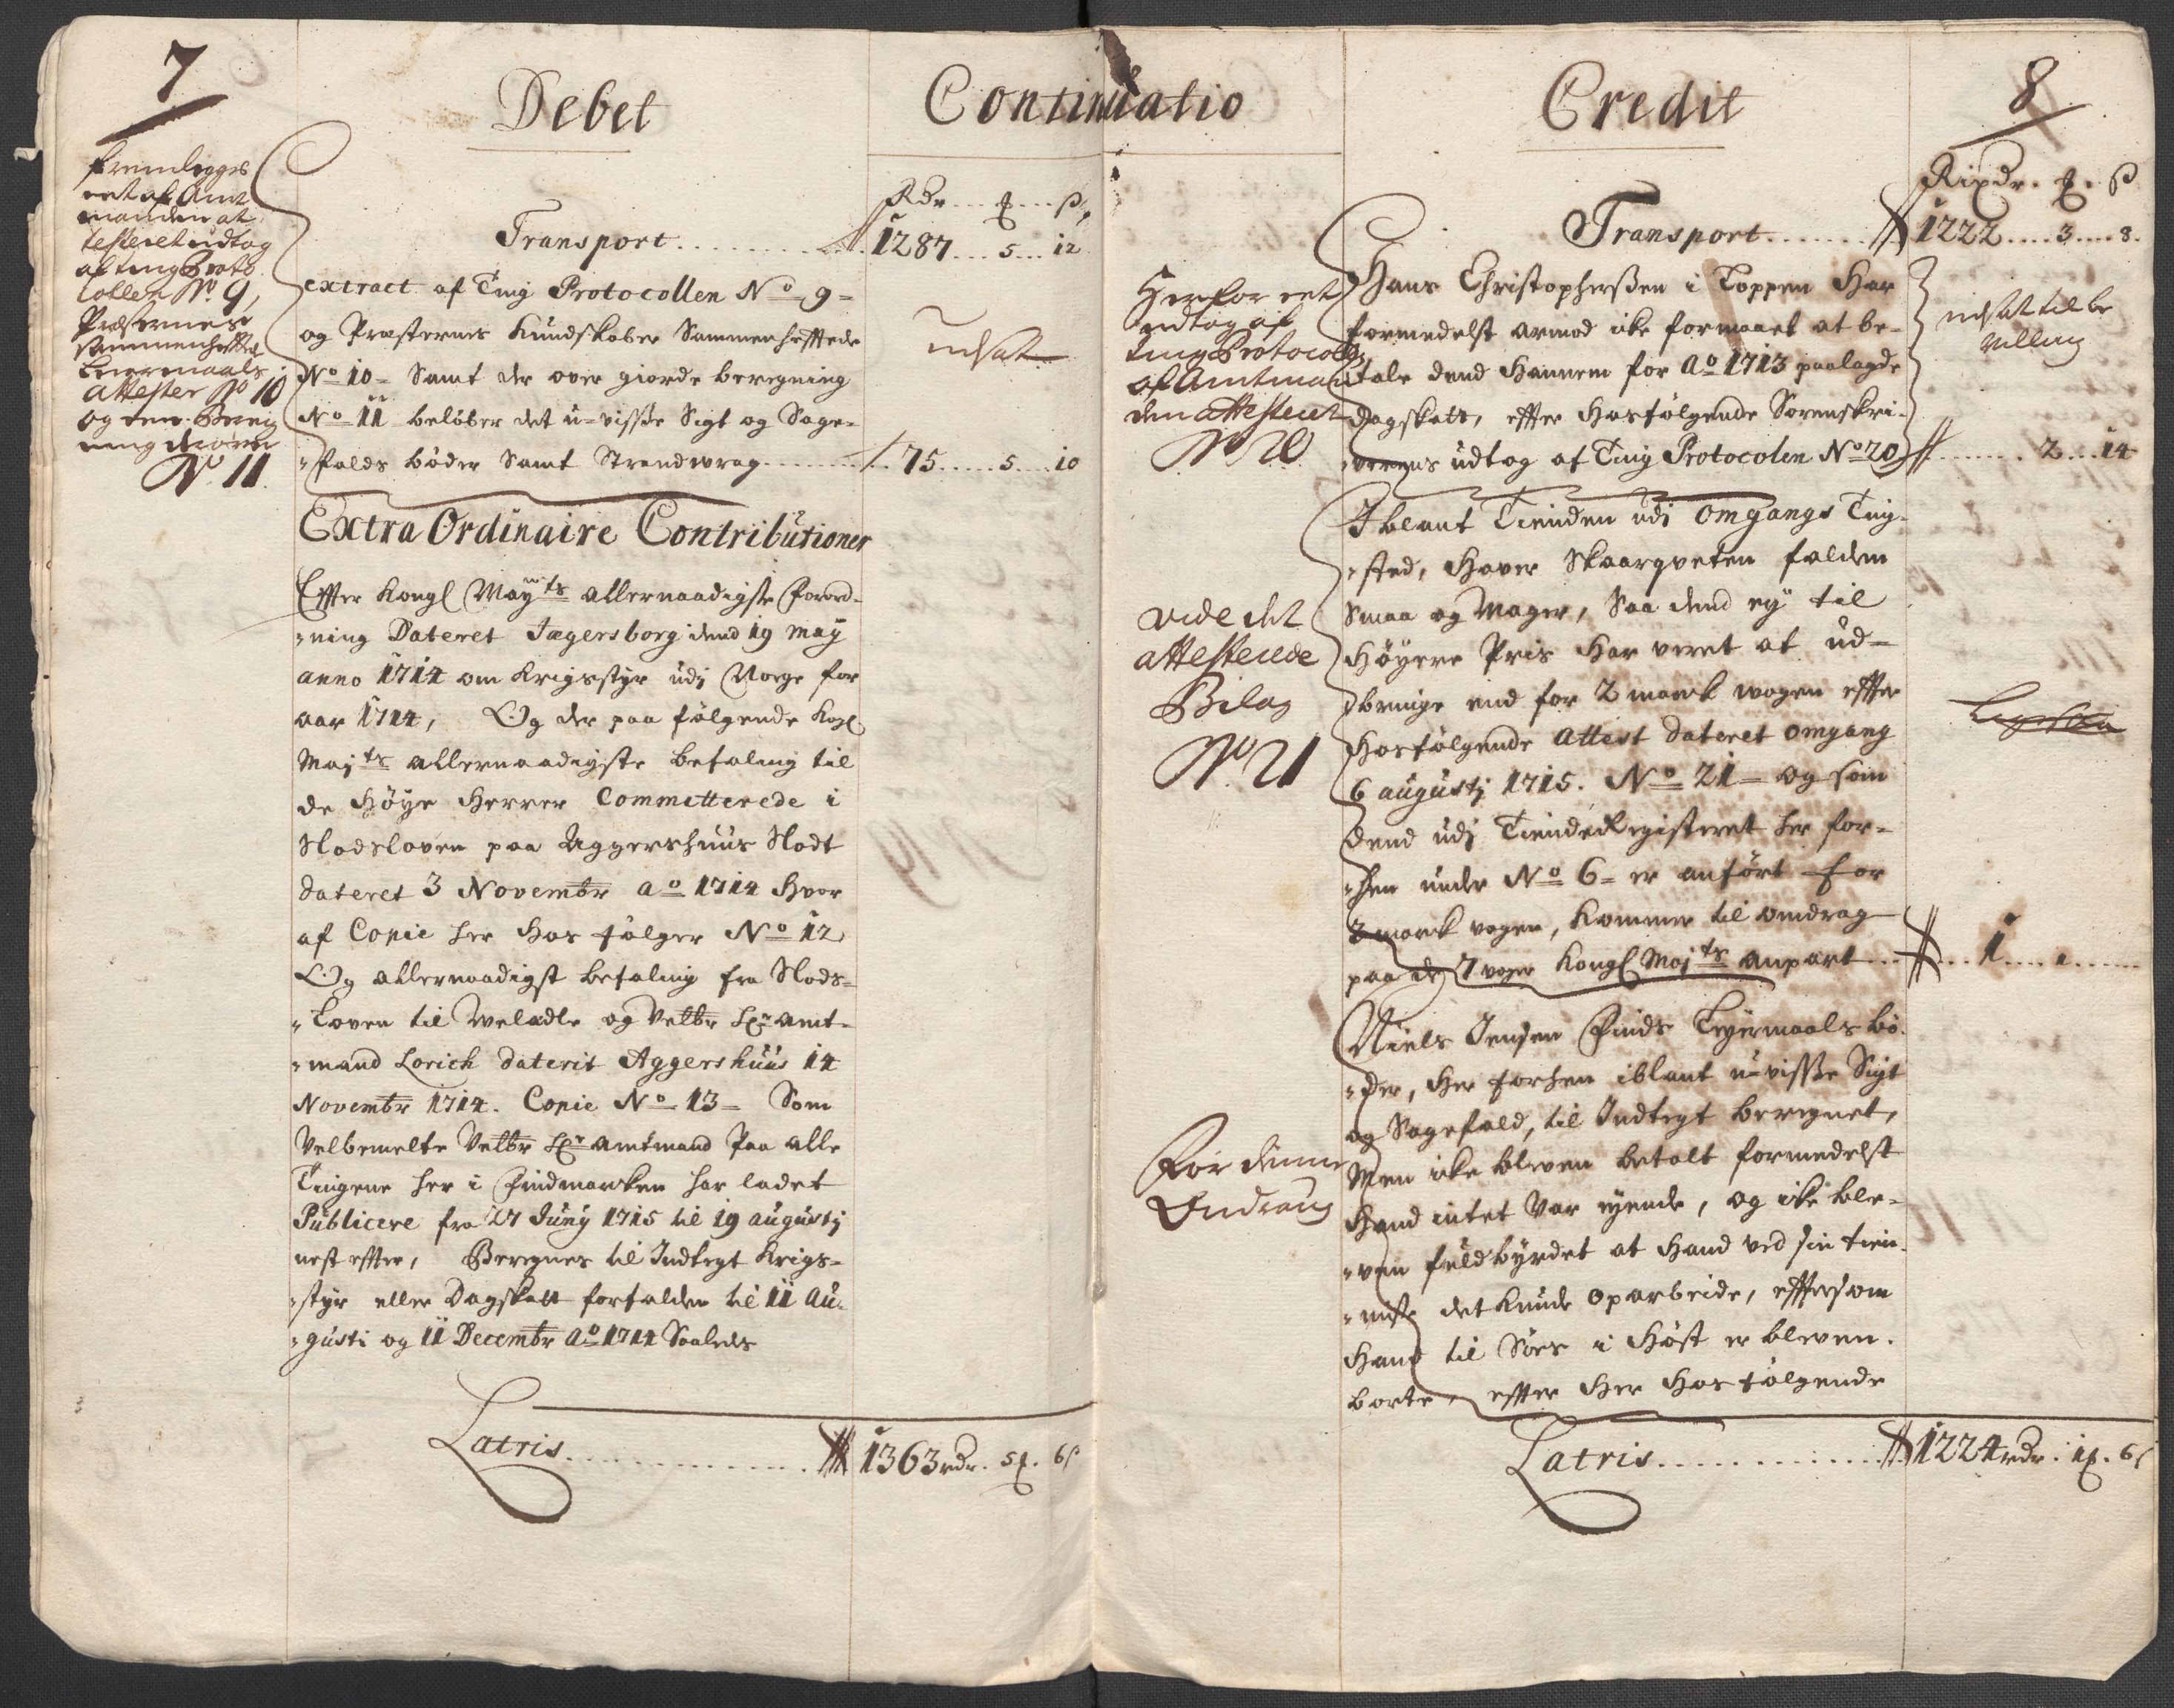 7
Debet
Continuatio
fremlegges
eet af Amt
manden at
testeret udtog
af ting Proto
collen No. 9,
Præsternes
sammenhefftede
Leiermaals
attester No 10
og den Bereig
ning derover
No. 11
Rdr ... ß
Transport ........ 1287 ... 5 ... 12
extract af Ting Protocollen No 9=
og Præsternes Kundskaber Sammenhefftede
No 10= Samt der over giorde beregning
No 11 beløber det u=visse Sigt og Sage=
falds bøder Samt Strandwrag ........ 75 ..... 5 ... 10
udsat
Extra Ordinaire Contributioner
Effter Kongl Mayts allernaadigste Forord=
ning Dateret Jægersborg dend 19 Maÿ
anno 1714 om Krigsstyr udj Norge for
aar 1714, Og der paa følgende Kogl
Majts allernaadigste befaling til
de Høye Herrer Committerede i
Slodsloven paa Aggershuus Slodt
dateret 3 Novembr ao 1714 Hvor
af Copie her Hos følger No 12
Og allernaadigst befaling fra Slods=
Loven til Weladle og Velbr Hr amt=
mand Lorich daterit Aggershuus 14
Novembr 1714. Copie No 13= Som
Velbemelte Velbr Hr amtmand Paa alle
Tingene her i Findmarken har ladet
Publicere fra 27 Junij 1715 til 19 augustj
nest effter, Beregnes til Indtegt Krigs=
styr eller Dagskatt forfalden til 11 Au=
gusti og 11 Decembr Ao 1714 Saaledes
Latris .............. 1363 rdr. 5 . 6ß
8
Credit
Rixdr. ß
Transport ....... 1222 .... 3 .... 8.
Herfor eet
udtog af
ting Protocoll
af Amtman
den attesteret
No 20
Hans Christophersen i Toppen Har
formedelst armod icke formaaet at be=
tale dend Hannem for Ao 1713 paalagde
dagskatt, effter Hosfølgende Sorenskri=
verens udtog af Ting Protocolen No 20 ........ 2 ... 14
udsat til be
villing
Iblant Tienden udj Omgangs Ting=
sted, Haver Skaarqveten falden
Smaa og Mager, Saa dend eÿ til
Høÿere Pris Har veret at ud=
bringe end for 2 marck wogen effter
Hosfølgende Attest dateret Omgang
6 augustj 1715. No 21= og som
dend udj TiendeRegisteret her for=
hen under No 6= er anført for
3 marck vogen, Kommer til omdrag
paa de 7 voger Kongl Majts anpart ... 1 .... 1 .......
vide det
attesterede
Bilag
No. 21
Niels Jensen Finds Leÿermaals bø=
der, Her forhen iblant u=visse Sigt
og Sagefald, til Indtegt beregnet,
Men icke bleven betalt formedelst
Hand intet Var eyende, og icke ble=
ven fuldbyrdet at Hand ved sin tien=
niste det kunde oparbeide, effftersom
Hand til Søes i Høst er bleven.
borte, effter Her Hos følgende
For denne
Endrang
Latris ............. 1224 rdr. 1 . 6ß